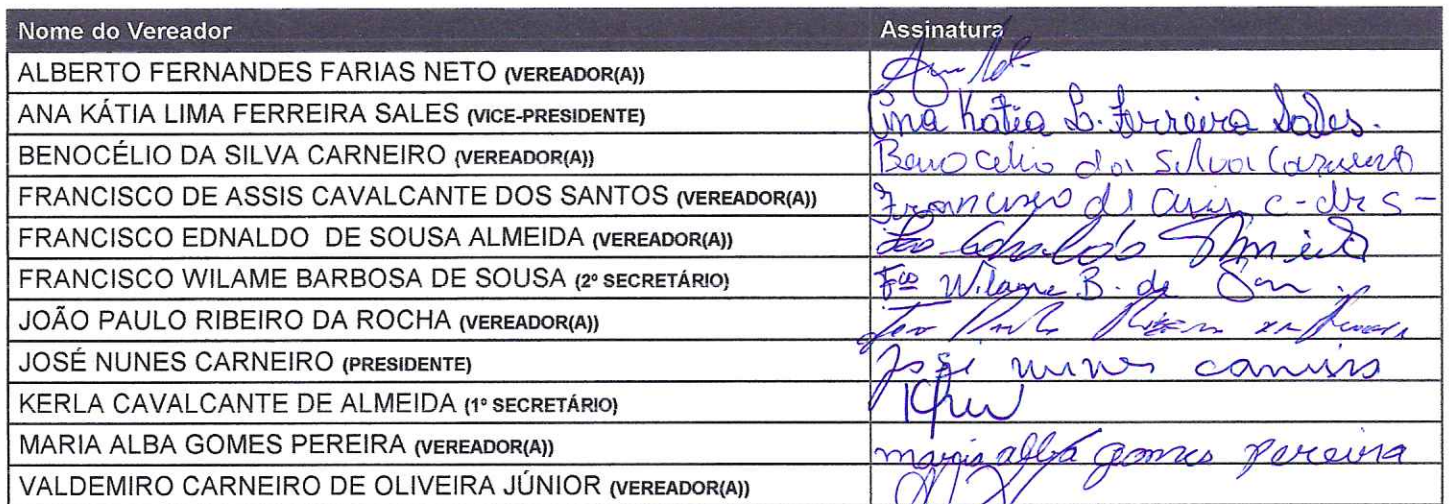 Nome do Vereador Assinatura
ALBERTO FERNANDES FARIAS NETO (VEREADOR(A))
ANA KÁTIA LIMA FERREIRA SALES (VICE-PRESIDENTE) Ana Katia L. Ferreira Sales.
BENOCÉLIO DA SILVA CARNEIRO (VEREADOR(A)) Benocelio da Silva Carneiro
FRANCISCO DE ASSIS CAVALCANTE DOS SANTOS (VEREADOR(A)) Francisco de Assis c-dr s-
FRANCISCO EDNALDO DE SOUSA ALMEIDA (VEREADOR(A)) Fco Ednaldo Almeida
FRANCISCO WILAME BARBOSA DE SOUSA (2º SECRETÁRIO) Fco Wilame B. de
JOÃO PAULO RIBEIRO DA ROCHA (VEREADOR(A)) João Paulo Ribeiro
JOSÉ NUNES CARNEIRO (PRESIDENTE) José nunes carneiro
KERLA CAVALCANTE DE ALMEIDA (1º SECRETÁRIO)
MARIA ALBA GOMES PEREIRA (VEREADOR(A)) maria alba gomes pereira
VALDEMIRO CARNEIRO DE OLIVEIRA JÚNIOR (VEREADOR(A))